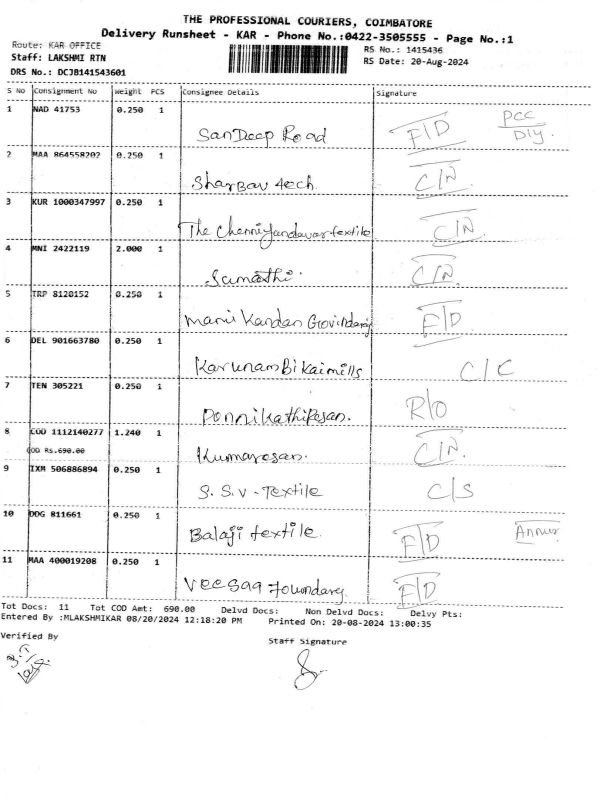 THE PROFESSIONAL COURIERS, COIMBATORE
Delivery Runsheet - KAR - Phone No.:0422-3505555 - Page No.:1
Route: KAR OFFICE RS No.: 1415436
Staff: LAKSHMI RTN RS Date: 20-Aug-2024
DRS No.: DCJB141543601
S No Consignment No Weight PCS Consignee Details Signature
1 NAD 41753 0.250 1 SanDeep Road F/D PCC Dly.
2 MAA 864558202 0.250 1 Sharbav tech. C/N
3 KUR 1000347997 0.250 1 The Chenniyandavar textile C/N
4 MNI 2422119 2.000 1 Sumathi. C/N
5 TRP 8120152 0.250 1 Mani Kandan Govindaraj F/D
6 DEL 901663780 0.250 1 Karunambikaimills C/C
7 TEN 305221 0.250 1 Ponnikathiresan. R/O
8 COD 1112140277 1.240 1 Kumaresan. C/N.
COD Rs.690.00
9 IXM 506886894 0.250 1 S.S.V - Textile C/S
10 DDG 811661 0.250 1 Balaji textile F/D
11 MAA 400019208 0.250 1 Veesaa Foundary F/D
Tot Docs: 11 Tot COD Amt: 690.00 Delvd Docs: Non Delvd Docs: Delvy Pts:
Entered By :MLAKSHMIKAR 08/20/2024 12:18:20 PM Printed On: 20-08-2024 13:00:35
Verified By Staff Signature